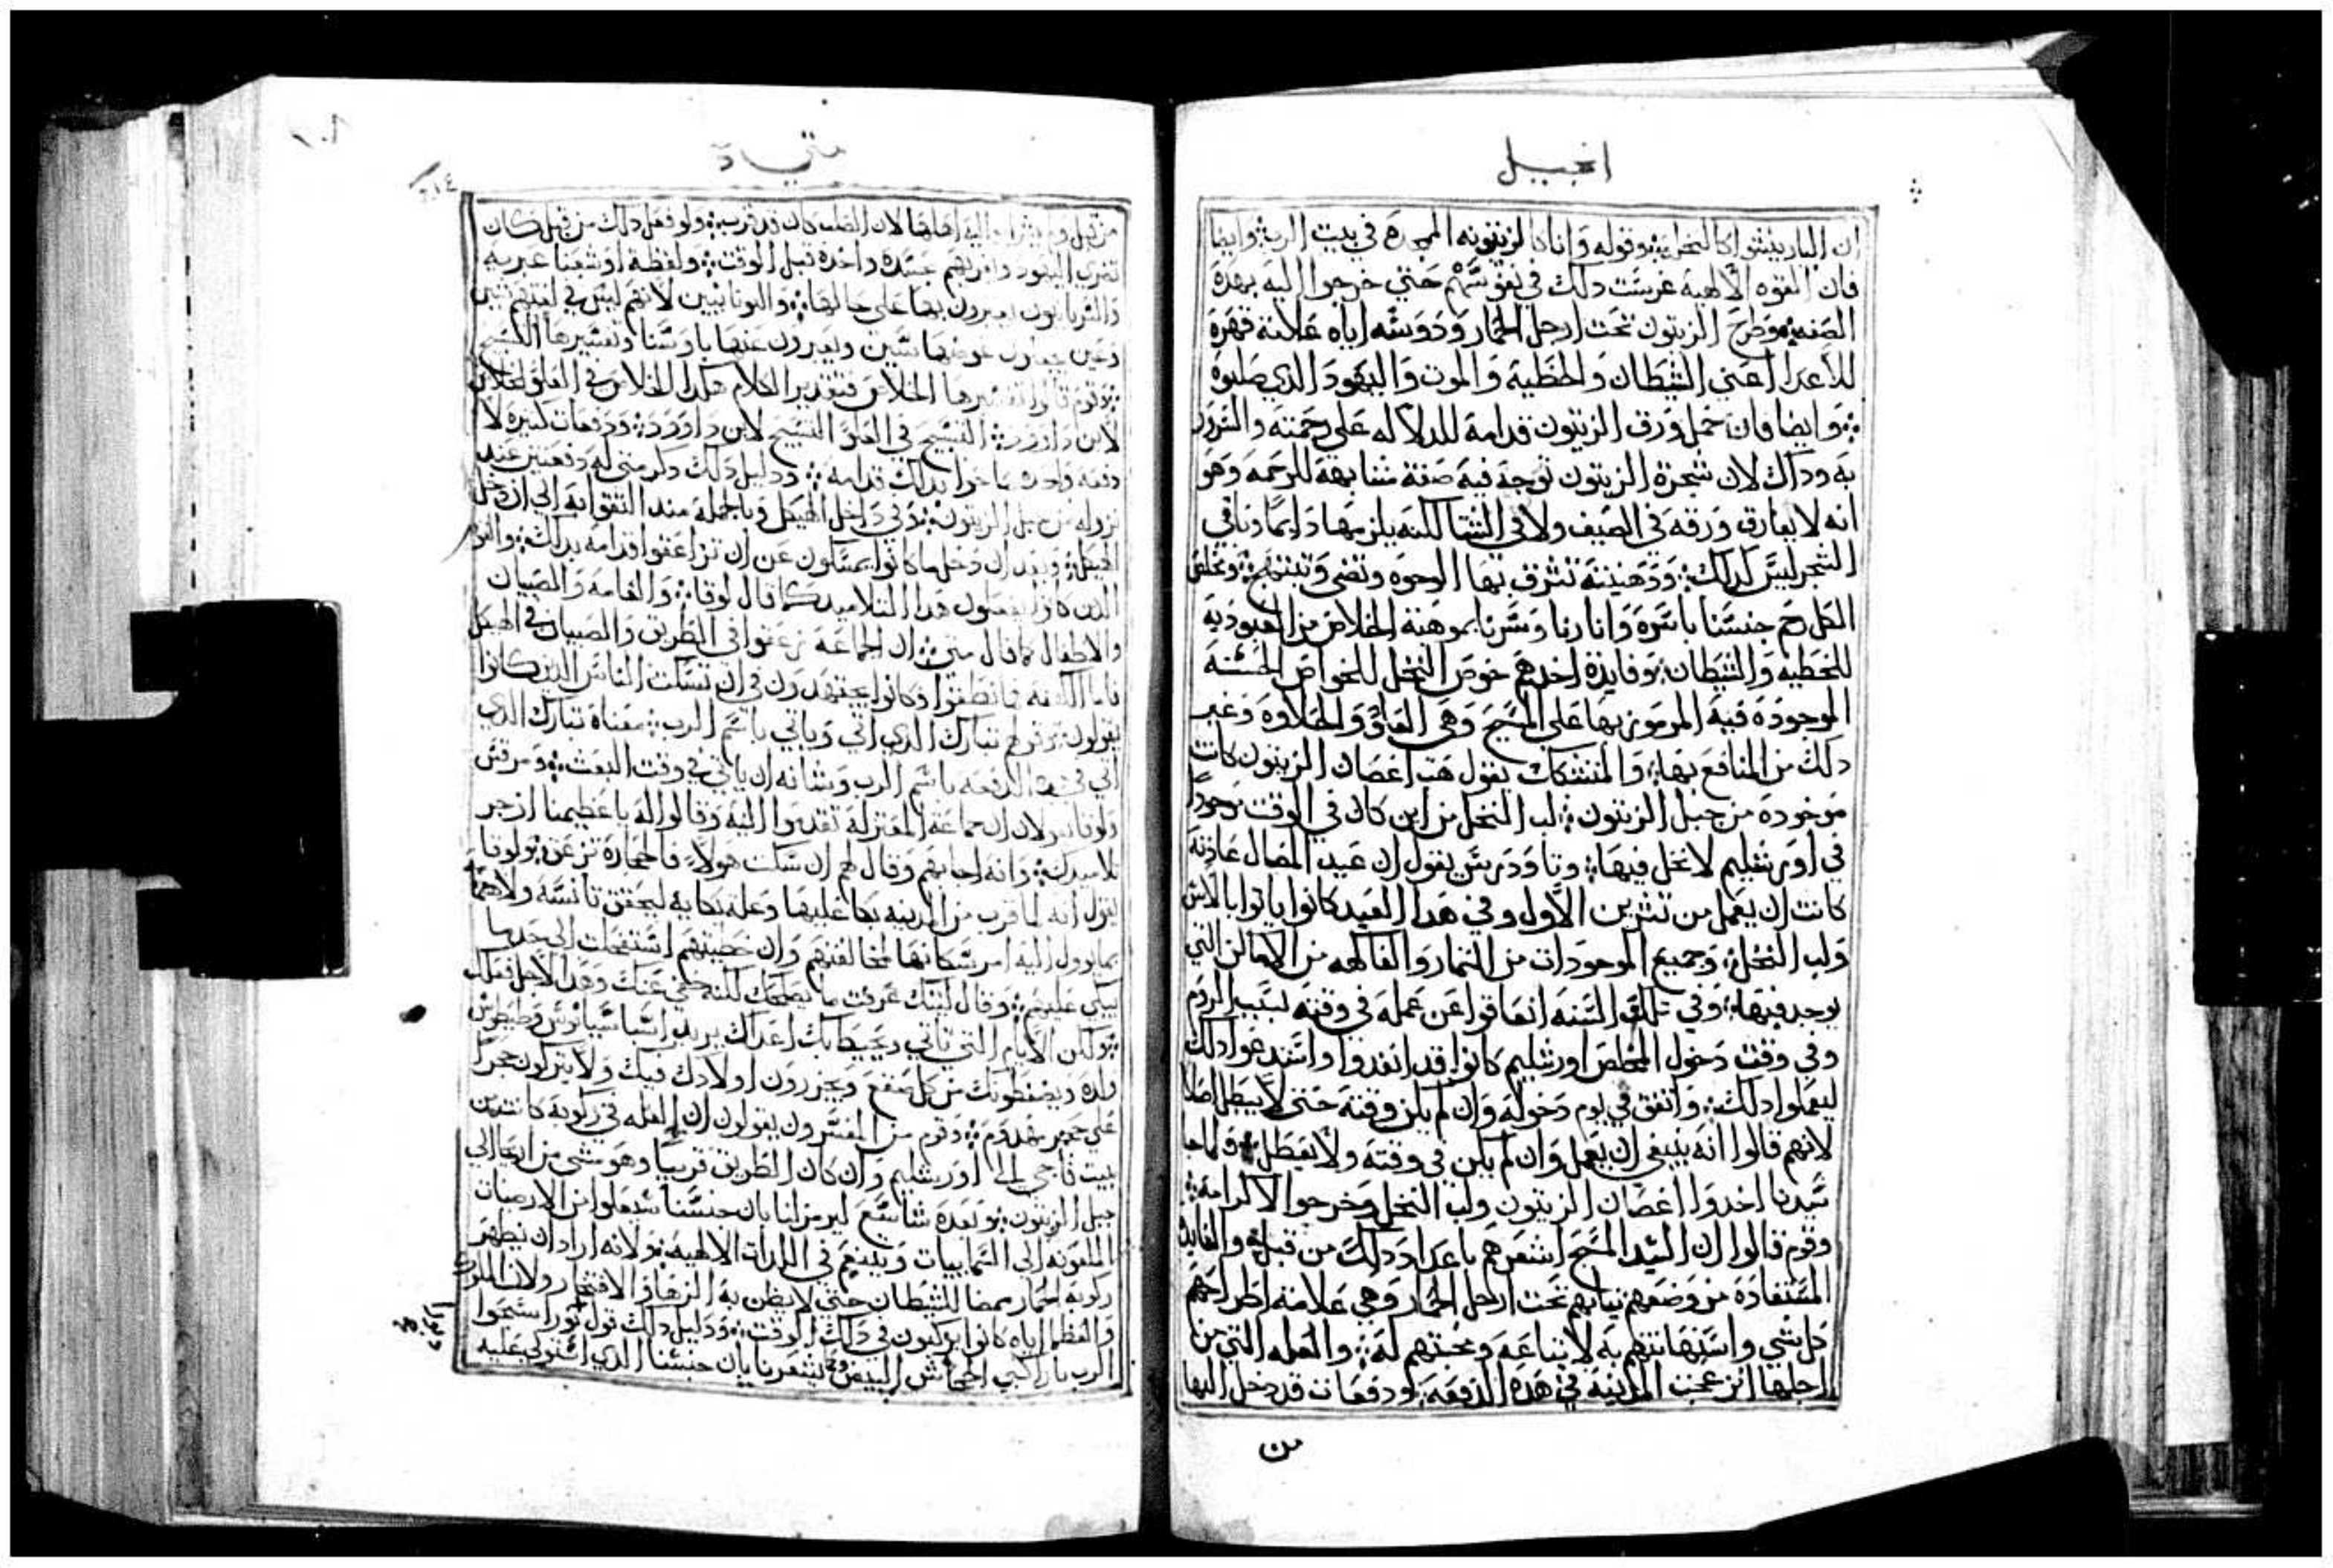 انجيل
ان البار ينشوا كالنخل وقوله وانا كالزيتونه الممجده في بيت الرب وايضا
فان القوه الالاهية غرست دلك في نفوسهم حتي خرجوا اليه بهده
الصفه وطرح الزيتون تحت ارجل الحمار ودوسه اياه علامة قهره
للأعدا اعني الشيطان والخطية والموت واليهود الدي صلبوه
وايضا فان حمل ورق الزيتون قدامه للدلاله علي رحمته والسرور
به وداك لان شجرة الزيتون توجد فيه صفة مشابهة للرحمه وهو
انه لا يفارق ورقه في الصيف ولا في الشتا لكنه يلزمها دايما وباقي
الشجر ليس كدلك ودهنيته تشرق بها الوجوه وتضي وتبتهج ومخلص
الكل رحم جنسنا باسره وانارنا وسرنا بموهبة الخلاص من العبوديه
للخطيه والشيطان وفايدة اخدهم خوص النخل للخواص الحسنه
الموجوده فيه المرموز بها علي المسيح وهي العلو والحلاوه وغير
دلك من المنافع بها والمتشكك يقول هب اغصان الزيتون كانت
موجوده من جبل الزيتون لب النخل من اين كان في الوقت موجودا
في اورشليم لا نخل فيها وتاودريس يقول ان عيد المضال عادته
كانت ان يعمل من تشرين الأول وفي هدا العيد كانوا ياتوا بالاس
ولب النخل وجميع الموجودات من الثمار والفاكهه من الاماكن التي
يوجد فيها وفي تلك السنه انعاقوا عن عمله في وقته بسبب الروم
وفي وقت دخول المخلص اورشليم كانوا قد انفدوا واستدعوا دلك
ليعملوا دلك واتفق في يوم دخوله وان لم يكن وقته حتي لا يبطل اصلا
لانهم قالوا انه ينبغي ان يعمل وان لم يكن في وقته ولا يعطل ولما جا
سيدنا اخدوا اغصان الزيتون ولب النخل وخرجوا لاكرامه
وقوم قالوا ان السيد المسيح اشعرهم باعداد دلك من قبل والفايدة
المستفاده من وضعهم ثيابهم تحت ارجل الحمار وهي علامة اطراحهم
كل شي واستهانتهم به لاتباعه ومحبتهم له والعله التي من
اجلها انزعجت المدينة في هده الدفعه ودفعات قد دخل اليها
من
متي
من قبل ولم اليه اهلها لان الصلب كان قد قرب ولو فعل دلك من قبل كان
تضرب اليهود دفعة واحده قبل الوقت ولفظة اوشعنا عبريه
والسريانيون يقرون بها علي حالها واليونانيين لانهم ليس في لغتهم شين
وعين يجعلون عوضها سين ويعبرون عنها باوسنا وتفسيرها التسبيح
وقوم قالوا تفسيرها الخلاص فتقدير الكلام هكدا الخلاص في العلو الخلاص
لابن داوود التسبيح في العلو التسبيح لابن داوود ودفعات كثيره لا
دفعه واحده صاحوا بدلك قدامه ودليل دلك دكر متي له دفعتين عند
نزوله من جبل الزيتون وفي داخل الهيكل وبالجملة مند التقوا به الي ان دخل
الهيكل وبعد ان دخل ما كانوا يمسكون عن ان يزعقوا قدامه بدلك والقوم
الدين كانوا يفعلون هدا التلاميد كما قال لوقا والعامه والصبيان
والاطفال كما قال متي ان الجماعه زعقوا في الطريق والصبيان في الهيكل
فاما الكهنه وكانوا يجتهدون في ان تسكت الناس الدين كانوا
يقولون وقولهم تبارك الدي اتي وياتي باسم الرب معناه تبارك الدي
اتي في هده الدفعه باسم الرب وشانه ان ياتي في وقت البعث ومرقس
ولوقا يقولان ان جماعة المعتزلة تقدموا اليه وقالوا له يا عظيمنا ازجر
تلاميدك وانه اجابهم وقال لهم ان سكت هولاء فالحجارة تزعق ولوقا
يقول انه لما قرب من المدينه بكا عليها وعلة بكايه ليحقق تانسه ولاهتمامه
بما يوول اليه امر سكانها لمخالفتهم وان خطيتهم استفحلت الي حد بها
يبكي عليهم وقال ليتك عرفت ما يصلحك لكنه خفي عنك وهدا لاجل فعلك
ولكن الأيام التي تاتي ويحيط بك اعداك يريد اسباسيانوس وطيطوس
ولده ويضغطونك من كل صقع ويجزرون اولادك فيك ولا يتركون حجرا
علي حجر يهدوم وقوم من المفسرون يقولون ان العله في ركوبه كانت من
بيت فاجي الي اورشليم وان كان الطريق قريبا وهو مشي من اريحا الي
جبل الزيتون وبعده شاسع ليرمز لنا بان جنسنا سيعلوا من الارضيات
الملعونه الي السماييات ويتنعم في اللدات الالاهيه ولانه اراد ان يظهر
ركوبه الحمار رمضا للشيطان حتي لا يظن به الزهاو الافتخار ولان الملوك
والعظما اياه كانوا يركبون في دلك الوقت ودليل دلك قول تورا سبحوا
الرب يا راكبي الحمائش البيض وليشعرنا بان جنسنا الدي استولي عليه